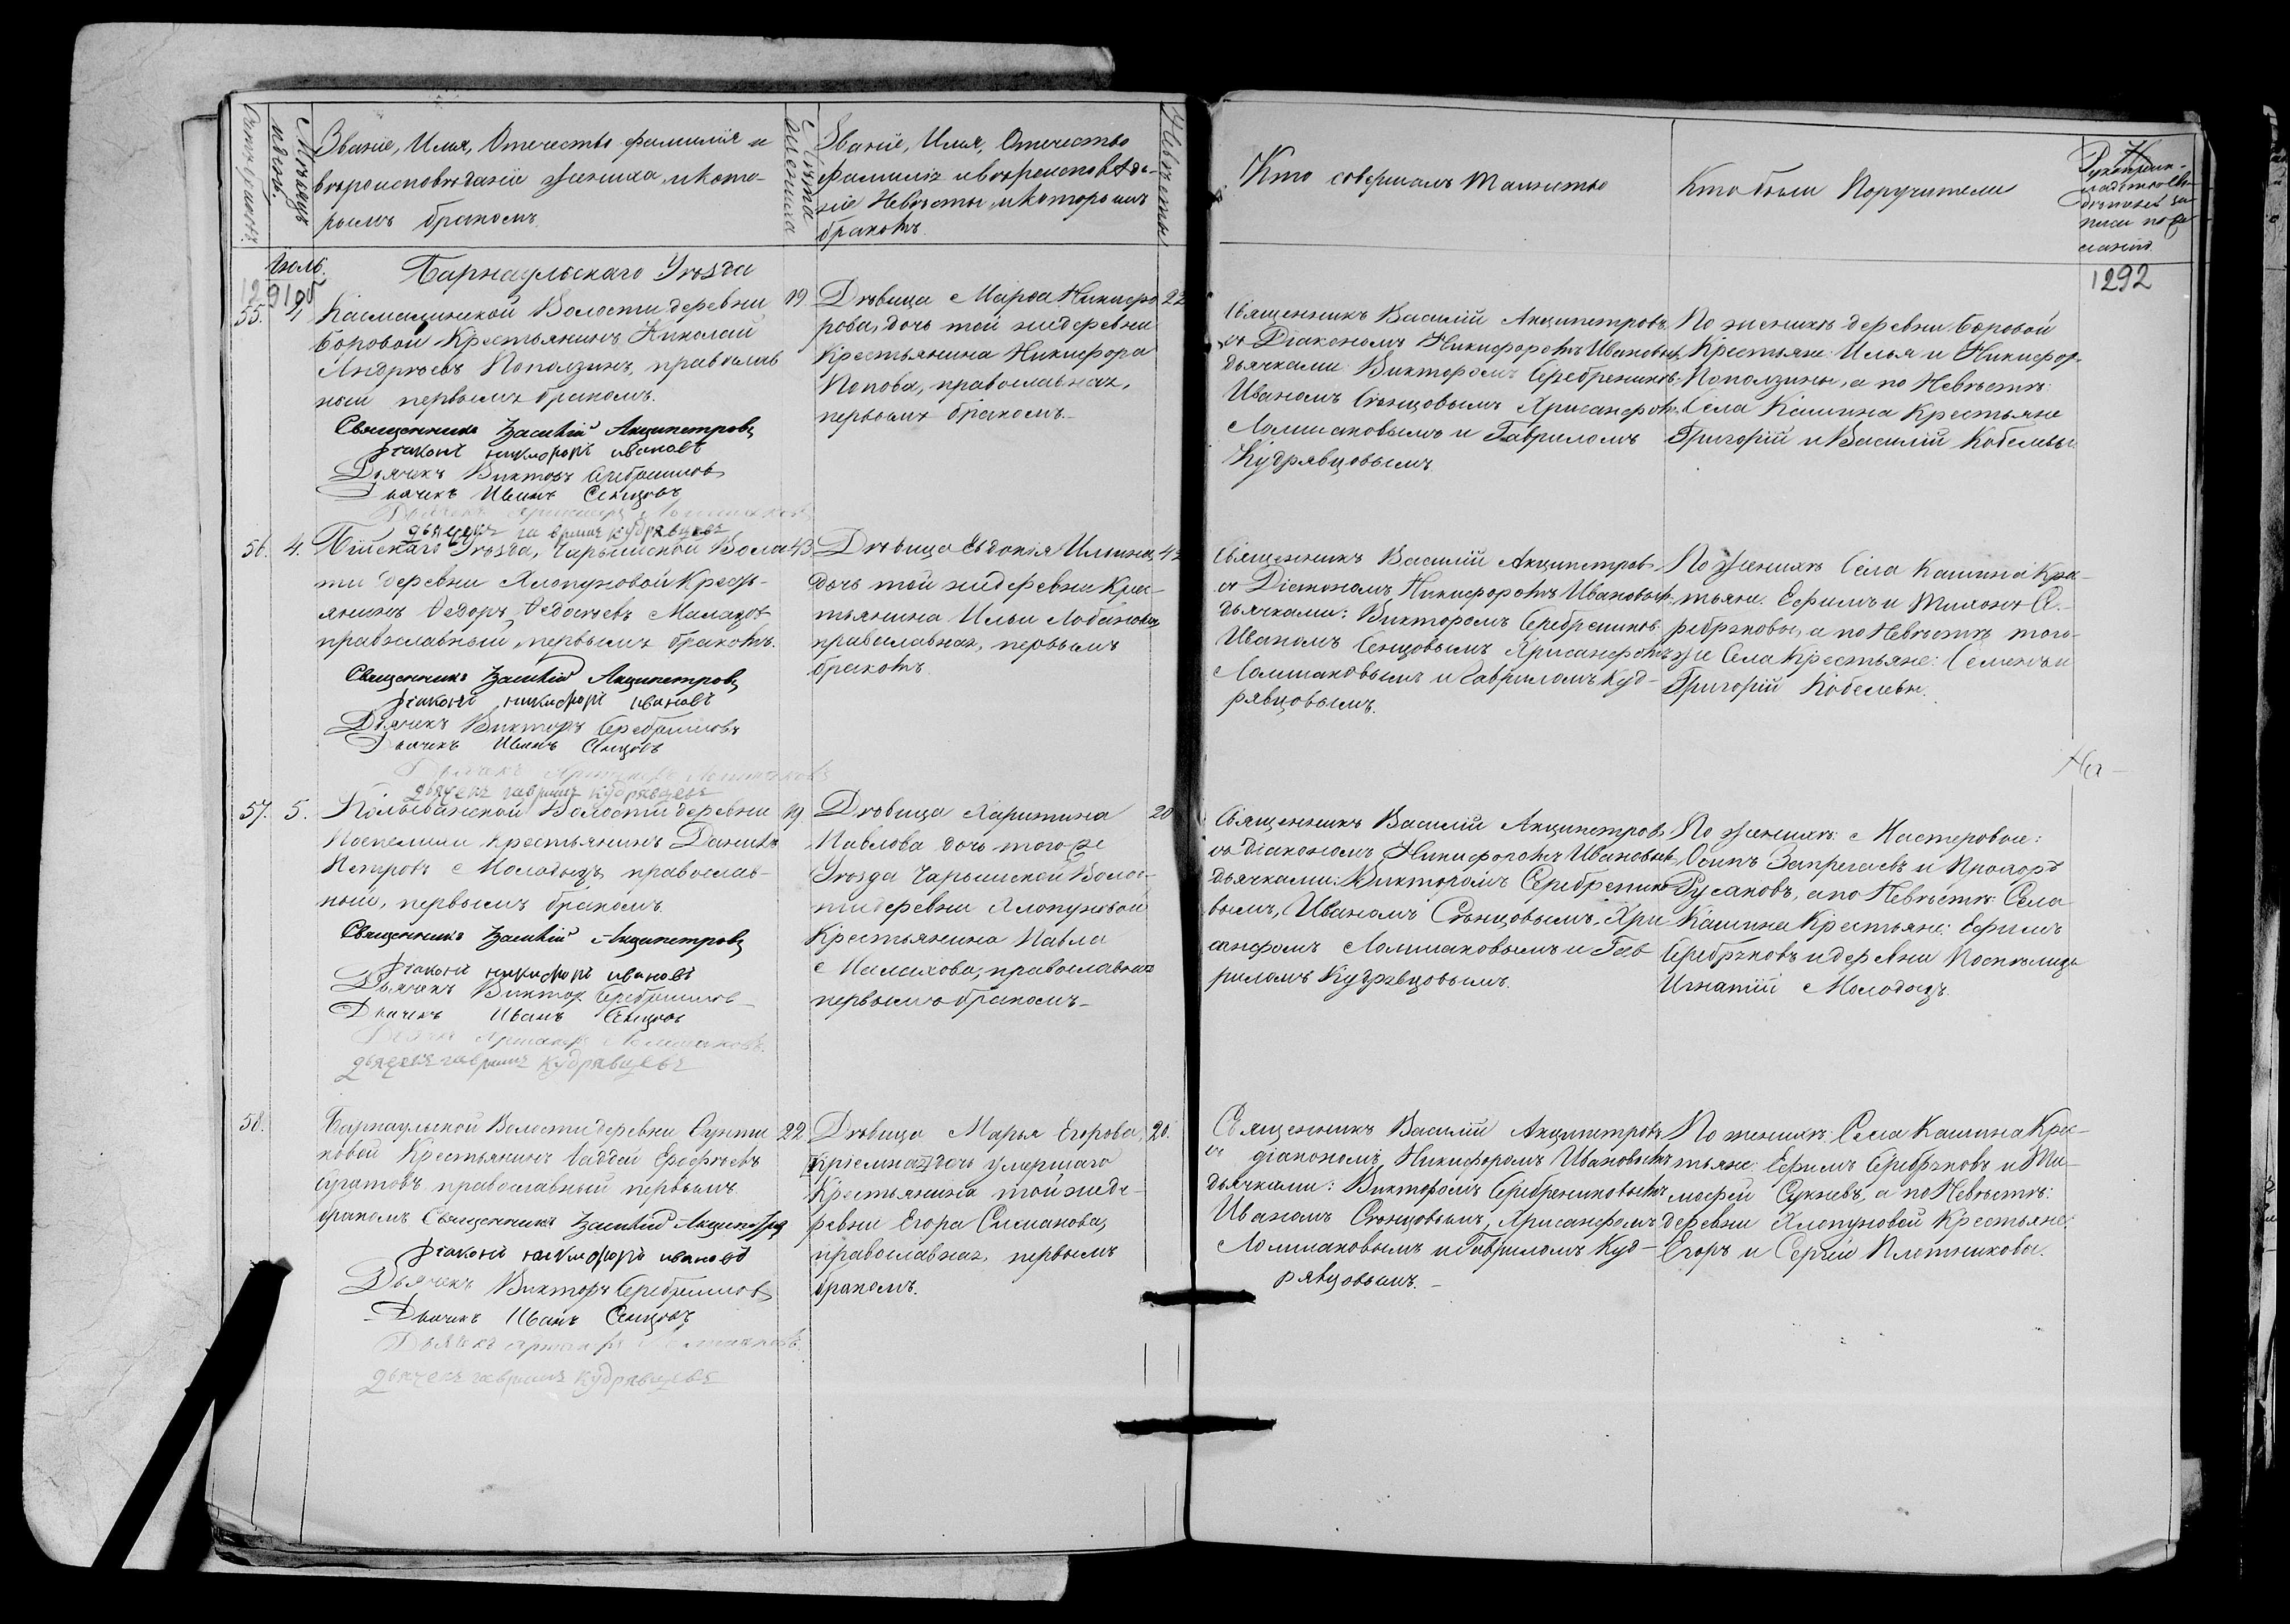 Счетъ браковъ.
Мѣсяцъ
и день.
Званіе, Имя, Отечество фамилія и
вѣроисповѣданіе Жениха, и кото-
рымъ бракомъ.
Лѣта
Жениха
Званіе, Имя, Отечество
фамилія и вѣроисповѣда-
ніе Невѣсты и которымъ
бракомъ.
Невѣсты
Кто совершалъ Таинство
Кто были Поручители
1292
Іюль.
Барнаульскаго Уѣзда
55.
4
Касмалинской Волости деревни
Боровой Крестьянинъ Николай
Андреевъ Поползинъ, православ
ный первымъ бракомъ.
Священникъ Василій Акципетровъ
Діаконъ Никифоръ Ивановъ
Дьячекъ Викторъ Серебренниковъ
Дьячекъ Иванъ Сенцовъ
дьячекъ гаврилъ кудрявцевъ
19
Дѣвица Марѳа Никифо
рова, дочь той же деревни
Крестьянина Никифора
Попова, православная,
первымъ бракомъ.
22
Священникъ Василій Акципетровъ
съ Діакономъ Никифоромъ Ивановымъ
дьячками Викторомъ Серебрениковъ
Иваномъ Сѣнцовымъ Хрисанфомъ
Ломшаковымъ и Гавриломъ
Кудрявцовымъ.
По женихѣ деревни Боровой
Крестьяне Илья и Никифор
Поползины, а по Невѣстѣ:
Села Кашина Крестьяне
Григорій и Василій Кобелевы
56.
4.
Бійскаго Уѣзда, Чарышской Воло
сти деревни Хлопуновой Кресть-
янинъ Ѳедоръ Ѳедосѣевъ
православный, первымъ бракомъ.
Священникъ Василій Акципетровъ
Діаконъ Никифоръ Ивановъ
Дьячекъ Викторъ Серебренниковъ
Дьячекъ Иванъ Сенцовъ
Дьячекъ Хрисанфъ Ломшаковъ
дьячекъ гаврилъ кудрявцевъ
43
Дѣвица Евдокія Ильина,
дочь той же деревни Крес-
тьянина Ильи Лобанова,
православная, первымъ
бракомъ.
Священникъ Василій Акципетровъ
съ Діакономъ Никифоромъ Ивановымъ
дьячками: Викторомъ Серебрениковъ
Иваномъ Сенцовымъ Хрисанфомъ
Ломшаковымъ и Гавриломъ Куд-
рявцовымъ.
По Женихѣ Села Кашина Кре-
стьяне. Ефимъ и Тихонъ Се-
ребряковы, а по Невѣстѣ того-
же Села Крестьяне: Семенъ и
Григорій Кобелевы.
57.
5.
Колыванской Волости деревни
Поспелихи Крестьянинъ Данила
Петровъ Молодыхъ, православ-
ный, первымъ бракомъ.
Священникъ Василій Акципетровъ
Діаконъ Никифоръ Ивановъ
Дьячекъ Викторъ Серебренниковъ
Дьячекъ Иванъ Сенцовъ
Дьячекъ Хрисанфъ Ломшаковъ.
дьячекъ гаврилъ кудрявцевъ
19
Дѣвица Харитина
Павлова дочь того-же
Уѣзда Чарышской Волос-
ти деревни Хлопуновой
Крестьянина Павла
Малахова, православная
первымъ бракомъ
20
Священникъ Василій Акципетровъ
съ діакономъ Никифоромъ Ивановымъ
дьячками: Викторомъ Серебренико
вымъ, Иваномъ Сѣнцовымъ, Хри
санфомъ Ломшаковымъ и Гав
риломъ Кудрявцовымъ.
По Женихѣ: Мастеровые:
Осипъ Запрегаевъ и Прохоръ
Русаковъ, а по Невѣстѣ: Села
Кашина Крестьяне: Ефимъ
Серебряковъ и деревни Поспѣлихи
Игнатій Молодыхъ.
58.
Барнаульской Волости деревни
Крестьянинъ Ѳаддей Ерофѣевъ
православный первымъ
бракомъ Священникъ Василій Акципетровъ
Діаконъ Никифоръ Ивановъ
Дьячекъ Викторъ Серебренниковъ
Дьячекъ Иванъ Сенцовъ
Дьячекъ Хрисанфъ Ломшаковъ.
дьячекъ гаврилъ кудрявцевъ
22
Дѣвица Марья Егорова,
пріемная дочь умершаго
Крестьянина той же де-
ревни Егора Симанова,
православная, первымъ
бракомъ.
20.
Священникъ Василій Акципетровъ
съ діакономъ Никифоромъ Ивановымъ
дьячками: Викторомъ Серебрениковымъ
Иваномъ Сѣнцовымъ, Хрисанфомъ
Ломшаковымъ и Гавриломъ Куд-
рявцовымъ.
По женихѣ: Села Кашина Кре-
стьяне: Ефимъ Серебряковъ и Ти-
мофей а по Невѣстѣ:
деревни Хлопуновой Крестьяне:
Егоръ и Сергѣй Плотниковы.